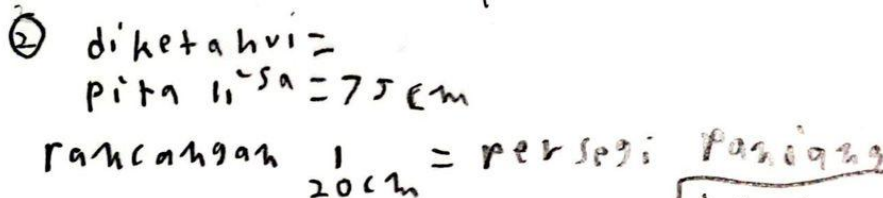 ② diketahui =
pita lisa = 75 cm
rancangan 1 = persegi panjang
20 cm